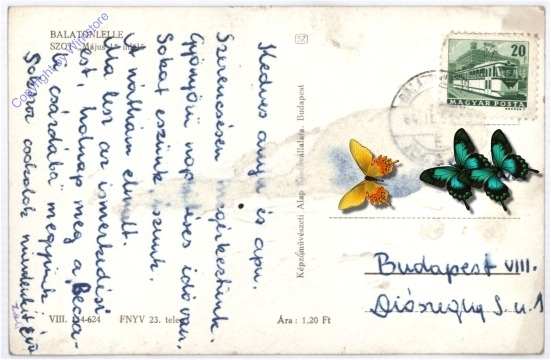 BALATONLELLE
SZOT "Május 1" üdülő
Kedves anyu és apu.
Szerencsésen megérkeztünk.
Gyönyörű napfényes idő van.
Sokat eszünk iszunk.
A náthám elmúlt.
Ma lesz az ismerkedési
est, holnap meg a "Becsa-
li csárdába" megyünk.
Sokszor csókolok mindenkit Évi
VIII. 134-624 FNYV 23. telep
Ára: 1,20 Ft
Képzőművészeti Alap Kiadóvállalata, Budapest
20
MAGYAR POSTA
Budapest VIII.
Diószeghy S. u. 1
Copyright by Winstore